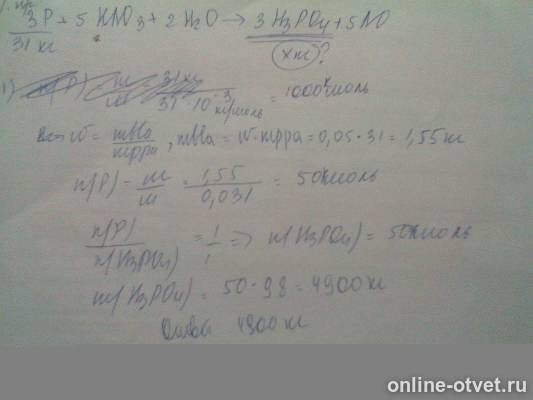 3P + 5HNO3 + 2H2O → 3H3PO4 + 5NO
31 кг
x m?
1) = 1000 моль
w = mвва / mрра, mвва = w · mрра = 0,05 · 31 = 1,55 кг
n(P) = m / M = 1,55 / 0,031 = 50 кмоль
n(P) / n(H3PO4) = 1 / 1 => n(H3PO4) = 50 кмоль
m(H3PO4) = 50 · 98 = 4900 кг
Ответ 4900 кг
online-otvet.ru